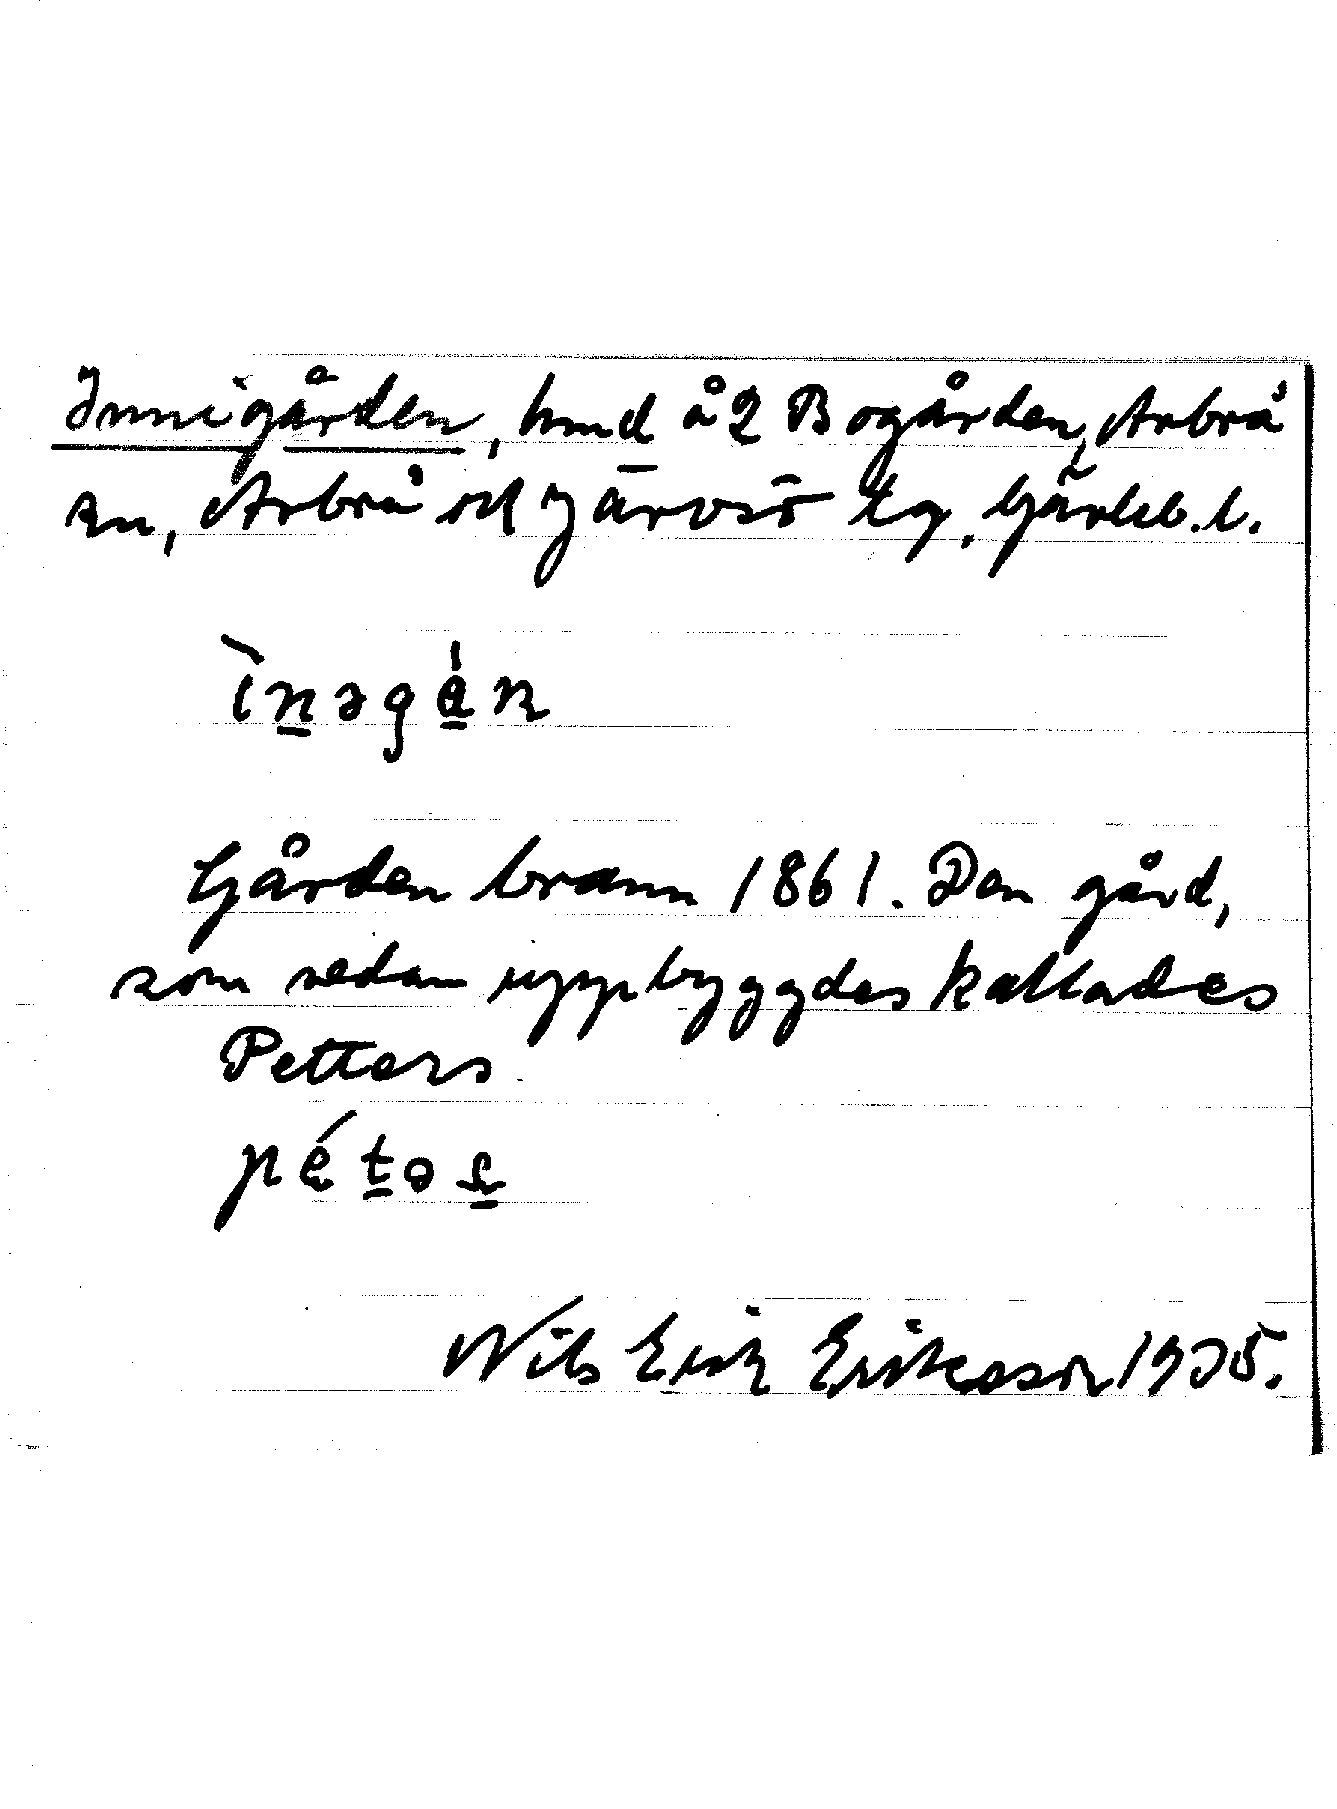 Innigården, hmd å 2 Bogården, Arbrå
sn, Arbrå och Järvsö tg. Gävleb. l.
ìnəgán
Gården brann 1861. Den gård,
som sedan uppbyggdes kallades
Petters
pétəs
Nils Erik Eriksson 1935.